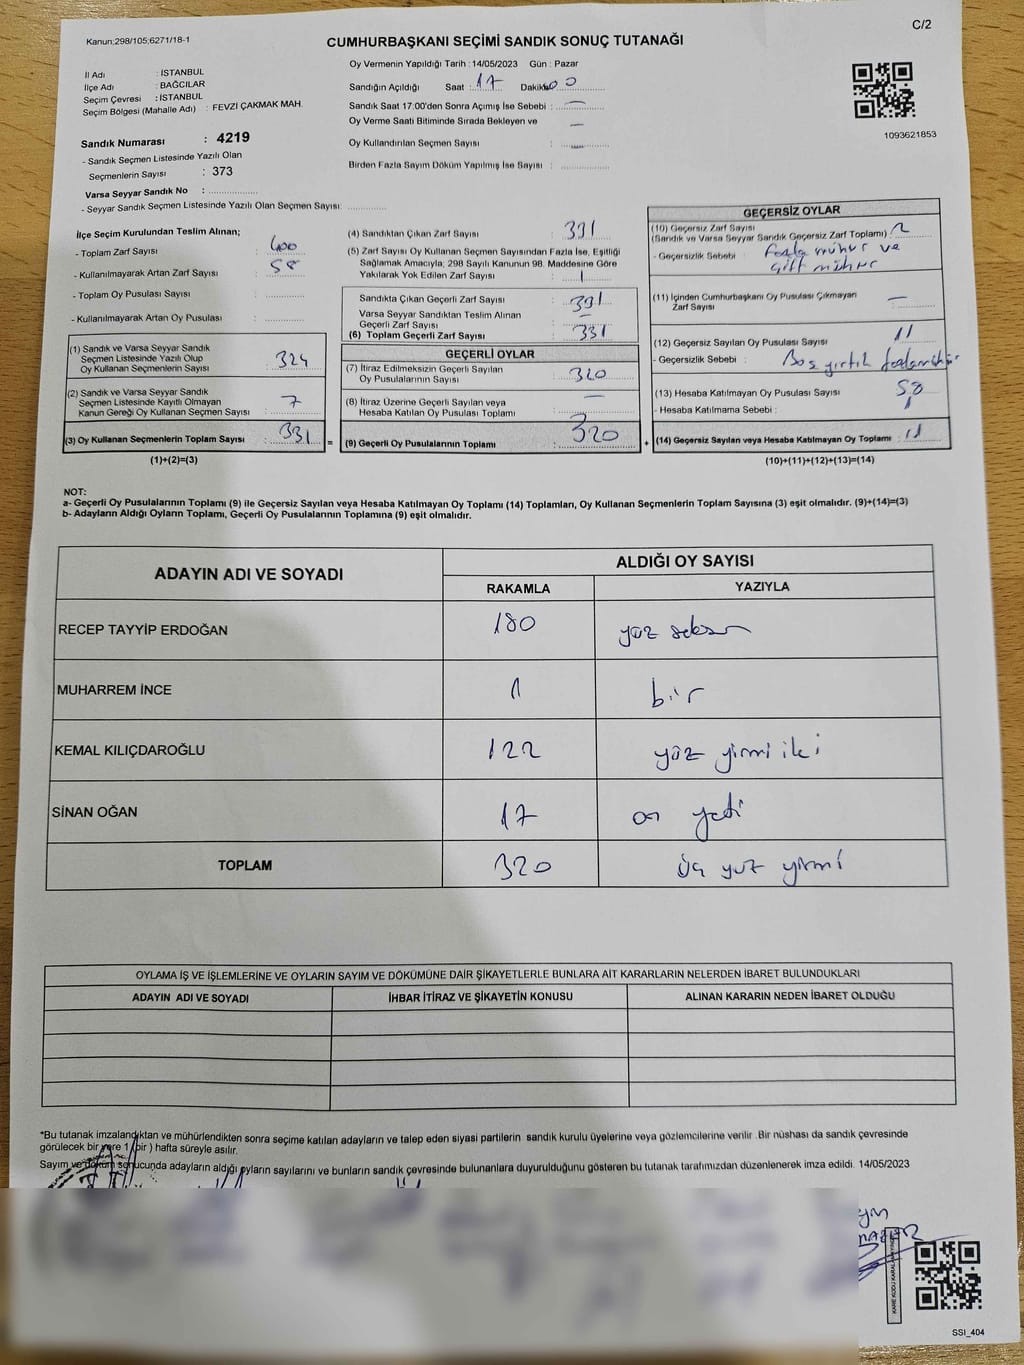 C/2
Kanun:298/105;6271/18-1
CUMHURBAŞKANI SEÇİMİ SANDIK SONUÇ TUTANAĞI
İl Adı : İSTANBUL
İlçe Adı : BAĞCILAR
Seçim Çevresi : İSTANBUL
Seçim Bölgesi (Mahalle Adı) : FEVZİ ÇAKMAK MAH.
Sandık Numarası : 4219
- Sandık Seçmen Listesinde Yazılı Olan
Seçmenlerin Sayısı : 373
Varsa Seyyar Sandık No : ...............
- Seyyar Sandık Seçmen Listesinde Yazılı Olan Seçmen Sayısı: ............
Oy Vermenin Yapıldığı Tarih : 14/05/2023 Gün : Pazar
Sandığın Açıldığı Saat : 17 Dakika: 00
Sandık Saat 17:00'den Sonra Açımış İse Sebebi : —
Oy Verme Saati Bitiminde Sırada Bekleyen ve —
Oy Kullandırılan Seçmen Sayısı : —
Birden Fazla Sayım Döküm Yapılmış İse Sayısı : ............
1093621853
İlçe Seçim Kurulundan Teslim Alınan;
- Toplam Zarf Sayısı : 400
- Kullanılmayarak Artan Zarf Sayısı : 58
- Toplam Oy Pusulası Sayısı : ............
- Kullanılmayarak Artan Oy Pusulası : ............
(1) Sandık ve Varsa Seyyar Sandık
Seçmen Listesinde Yazılı Olup
Oy Kullanan Seçmenlerin Sayısı : 324
(2) Sandık ve Varsa Seyyar Sandık
Seçmen Listesinde Kayıtlı Olmayan
Kanun Gereği Oy Kullanan Seçmen Sayısı : 7
(3) Oy Kullanan Seçmenlerin Toplam Sayısı : 331 =
(1)+(2)=(3)
(4) Sandıktan Çıkan Zarf Sayısı : 331
(5) Zarf Sayısı Oy Kullanan Seçmen Sayısından Fazla İse, Eşitliği
Sağlamak Amacıyla; 298 Sayılı Kanunun 98. Maddesine Göre
Yakılarak Yok Edilen Zarf Sayısı :
Sandıkta Çıkan Geçerli Zarf Sayısı : 331
Varsa Seyyar Sandıktan Teslim Alınan
Geçerli Zarf Sayısı : —
(6) Toplam Geçerli Zarf Sayısı : 331
GEÇERLİ OYLAR
(7) İtiraz Edilmeksizin Geçerli Sayılan
Oy Pusulalarının Sayısı : 320
(8) İtiraz Üzerine Geçerli Sayılan veya
Hesaba Katılan Oy Pusulası Toplamı : —
(9) Geçerli Oy Pusulalarının Toplamı : 320 +
GEÇERSİZ OYLAR
(10) Geçersiz Zarf Sayısı
(Sandık ve Varsa Seyyar Sandık Geçersiz Zarf Toplamı) : 2
- Geçersizlik Sebebi : fazla mühür ve
çift mühür
(11) İçinden Cumhurbaşkanı Oy Pusulası Çıkmayan
Zarf Sayısı : —
(12) Geçersiz Sayılan Oy Pusulası Sayısı : 11
- Geçersizlik Sebebi : Boş yırtık fazla mühür
(13) Hesaba Katılmayan Oy Pusulası Sayısı : 58
- Hesaba Katılmama Sebebi :
(14) Geçersiz Sayılan veya Hesaba Katılmayan Oy Toplamı : 11
(10)+(11)+(12)+(13)=(14)
NOT:
a- Geçerli Oy Pusulalarının Toplamı (9) ile Geçersiz Sayılan veya Hesaba Katılmayan Oy Toplamı (14) Toplamları, Oy Kullanan Seçmenlerin Toplam Sayısına (3) eşit olmalıdır. (9)+(14)=(3)
b- Adayların Aldığı Oyların Toplamı, Geçerli Oy Pusulalarının Toplamına (9) eşit olmalıdır.
ADAYIN ADI VE SOYADI
ALDIĞI OY SAYISI
RAKAMLA YAZIYLA
RECEP TAYYİP ERDOĞAN 180 yüz seksen
MUHARREM İNCE 1 bir
KEMAL KILIÇDAROĞLU 122 yüz yirmi iki
SİNAN OĞAN 17 on yedi
TOPLAM 320 üç yüz yirmi
OYLAMA İŞ VE İŞLEMLERİNE VE OYLARIN SAYIM VE DÖKÜMÜNE DAİR ŞİKAYETLERLE BUNLARA AİT KARARLARIN NELERDEN İBARET BULUNDUKLARI
ADAYIN ADI VE SOYADI İHBAR İTİRAZ VE ŞİKAYETİN KONUSU ALINAN KARARIN NEDEN İBARET OLDUĞU
*Bu tutanak imzalandıktan ve mühürlendikten sonra seçime katılan adayların ve talep eden siyasi partilerin sandık kurulu üyelerine veya gözlemcilerine verilir. Bir nüshası da sandık çevresinde
görülecek bir yere 1 (bir) hafta süreyle asılır.
Sayım ve döküm sonucunda adayların aldığı oyların sayılarını ve bunların sandık çevresinde bulunanlara duyurulduğunu gösteren bu tutanak tarafımızdan düzenlenerek imza edildi. 14/05/2023
SSI_404